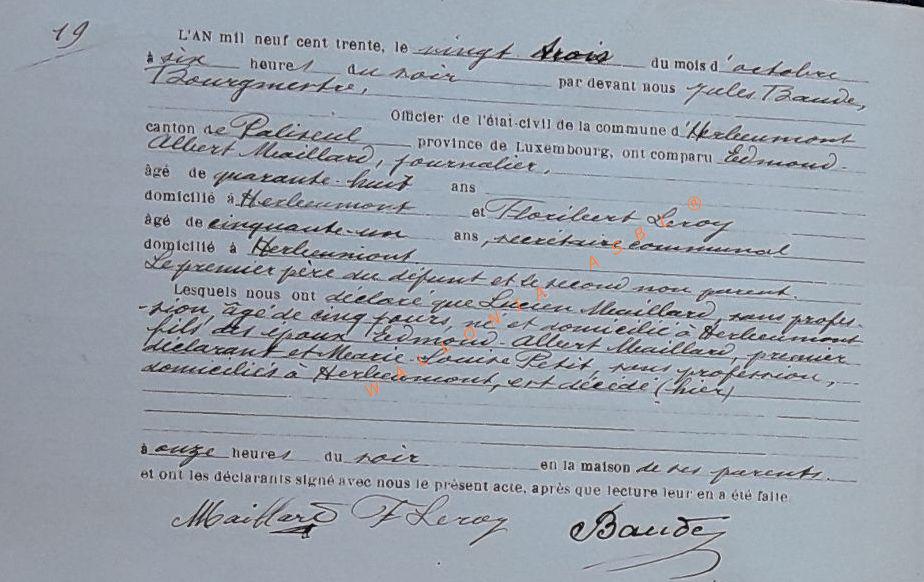 19
L'AN mil neuf cent trente, le vingt trois du mois d'octobre
à six heures du soir par devant nous Jules Baude,
Bourgmestre,
Officier de l'état-civil de la commune d'Herbeumont
canton de Paliseul province de Luxembourg, ont comparu Edmond-
Albert Maillard, journalier,
âgé de quarante-huit ans
domicilié à Herbeumont et Floribert Leroy
âgé de cinquante-un ans, secrétaire communal
domicilié à Herbeumont
Le premier père du défunt et le second non parent.
Lesquels nous ont déclaré que Lucien Maillard, sans profes-
-sion, âgé de cinq jours, né et domicilié à Herbeumont
fils des époux Edmond-Albert Maillard, premier
déclarant et Marie-Louise Petit, sans profession,
domiciliés à Herbeumont, est décédé (hier)
à onze heures du soir en la maison de ses parents.
et ont les déclarants signé avec nous le présent acte, après que lecture leur en a été faite.
Maillard F Leroy Baude
WALLONIA ASBL ®